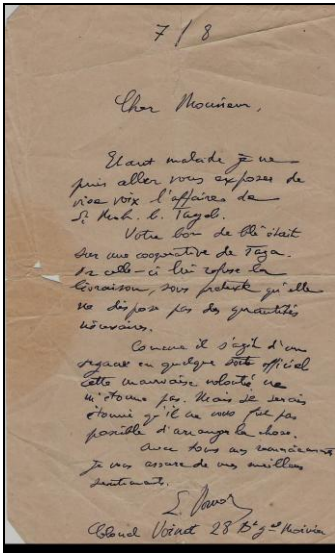 7/8
Cher Monsieur,
Etant malade je ne
puis aller vous exposer de
vive voix l'affaires de
Si b. Tayeb.
Votre bon de blé était
sur une cooperative de Taza.
Or celle-ci lui refuse la
livraison, sous pretexte qu'elle
ne dispose pas des quantités
Comme il s'agit d'un
organe en quelque sorte officiel
cette mauvaise volonté ne
m'étonne pas. Mais je serais
étonné qu'il ne vous fut pas
possible d'arranger la chose.
Avec tous mes remerciements
je vous assure de mes meilleurs
sentiments.
Voinot 28